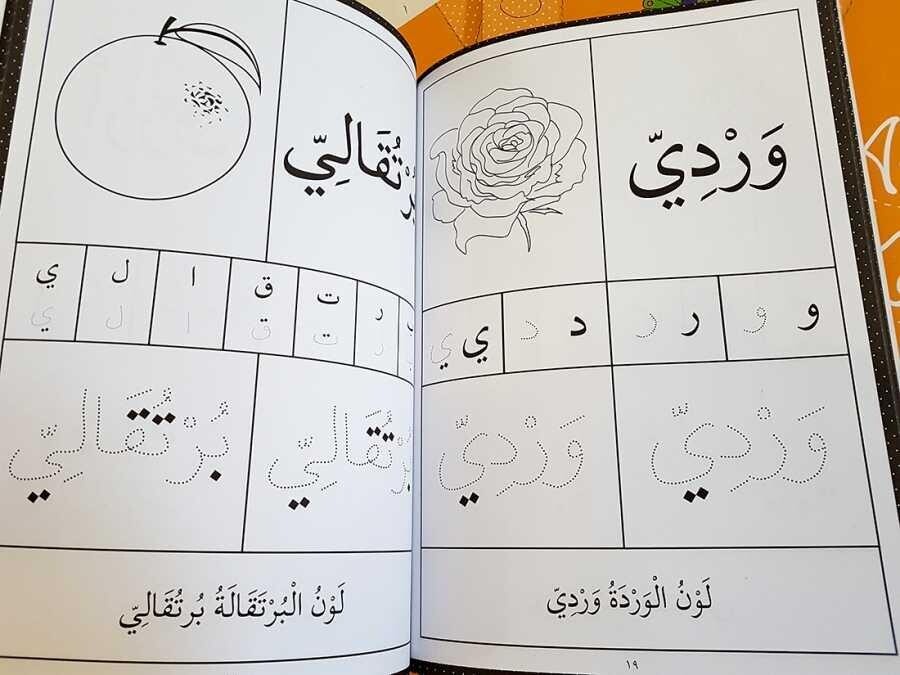 وَرْدِيّ
و و ر ر د د ي ي
وَرْدِيّ وَرْدِيّ
لَوْنُ الْوَرْدَةُ وَرْدِيّ
١٩
بُرْتُقَالِيّ
ر ت ق ا ل ي
ر ت ق ا ل ي
بُرْتُقَالِيّ بُرْتُقَالِيّ
لَوْنُ الْبُرْتَقَالَةُ بُرتُقَالِيّ